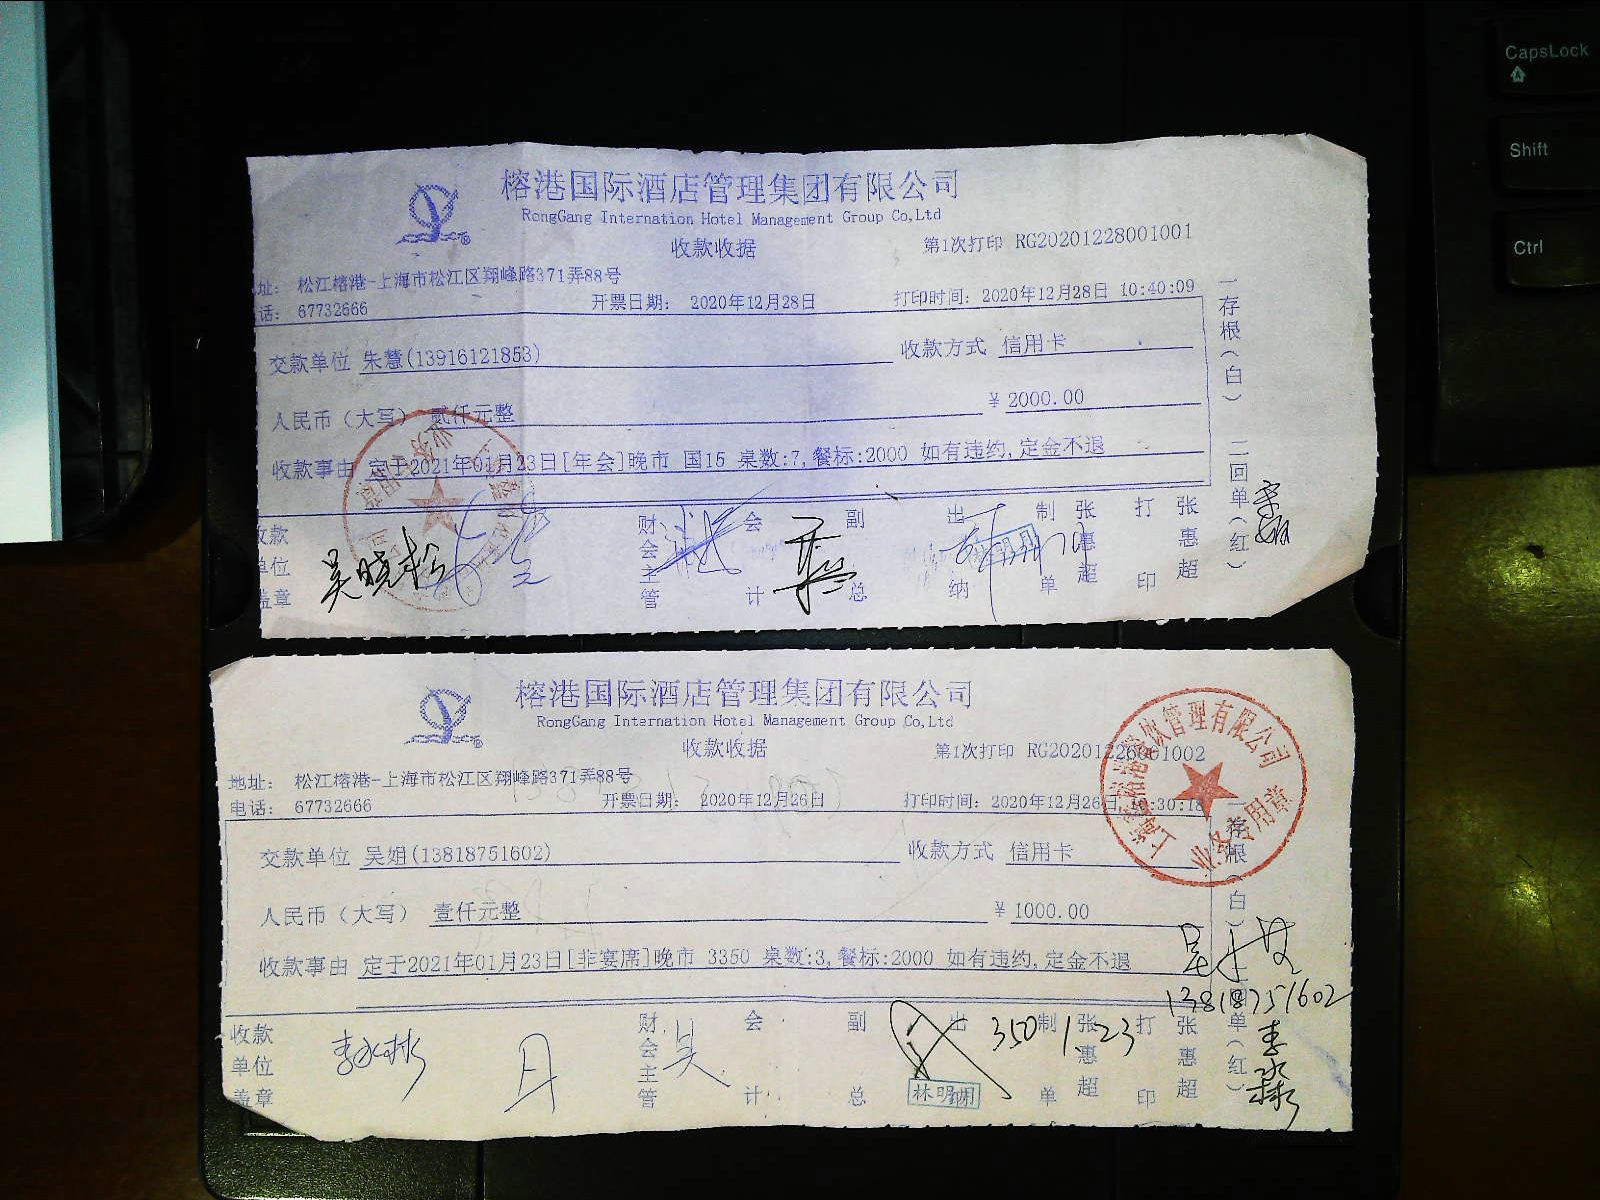 CapsLock
Shift
Ctrl
榕港国际酒店管理集团有限公司
RongGang Internation Hotel Management Group Co,Ltd
收款收据
第1次打印 RG20201228001001
址: 松江榕港-上海市松江区翔峰路371弄88号
话: 67732666
开票日期: 2020年12月28日
打印时间: 2020年12月28日 10:40:09
交款单位 朱慧(13916121853)
收款方式 信用卡
人民币（大写） 贰仟元整
¥ 2000.00
收款事由 定于2021年01月23日[年会]晚市 国15 桌数:7,餐标:2000 如有违约,定金不退
收款单位盖章
吴晓松
财会主管
会计
副总
出纳
制单
张惠超
打印
张惠超
一存根(白) 二回单(红)
榕港国际酒店管理集团有限公司
RongGang Internation Hotel Management Group Co,Ltd
收款收据
第1次打印 RG20201226001002
地址: 松江榕港-上海市松江区翔峰路371弄88号
电话: 67732666
开票日期: 2020年12月26日
打印时间: 2020年12月26日 :30:18
交款单位 吴姐(13818751602)
收款方式 信用卡
人民币（大写） 壹仟元整
¥ 1000.00
收款事由 定于2021年01月23日[非宴席]晚市 3350 桌数:3,餐标:2000 如有违约,定金不退
13818751602
收款单位盖章
财会主管
吴
会计
副总
出纳
林明
350 1.23
制单
张惠超
打印
张惠超
一存根(白)
单(红)
餐饮管理有限公司
业务专用章